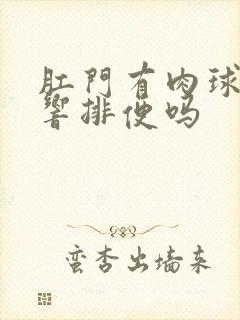 肛門有肉球
響排便吗
蛮杏出墙来